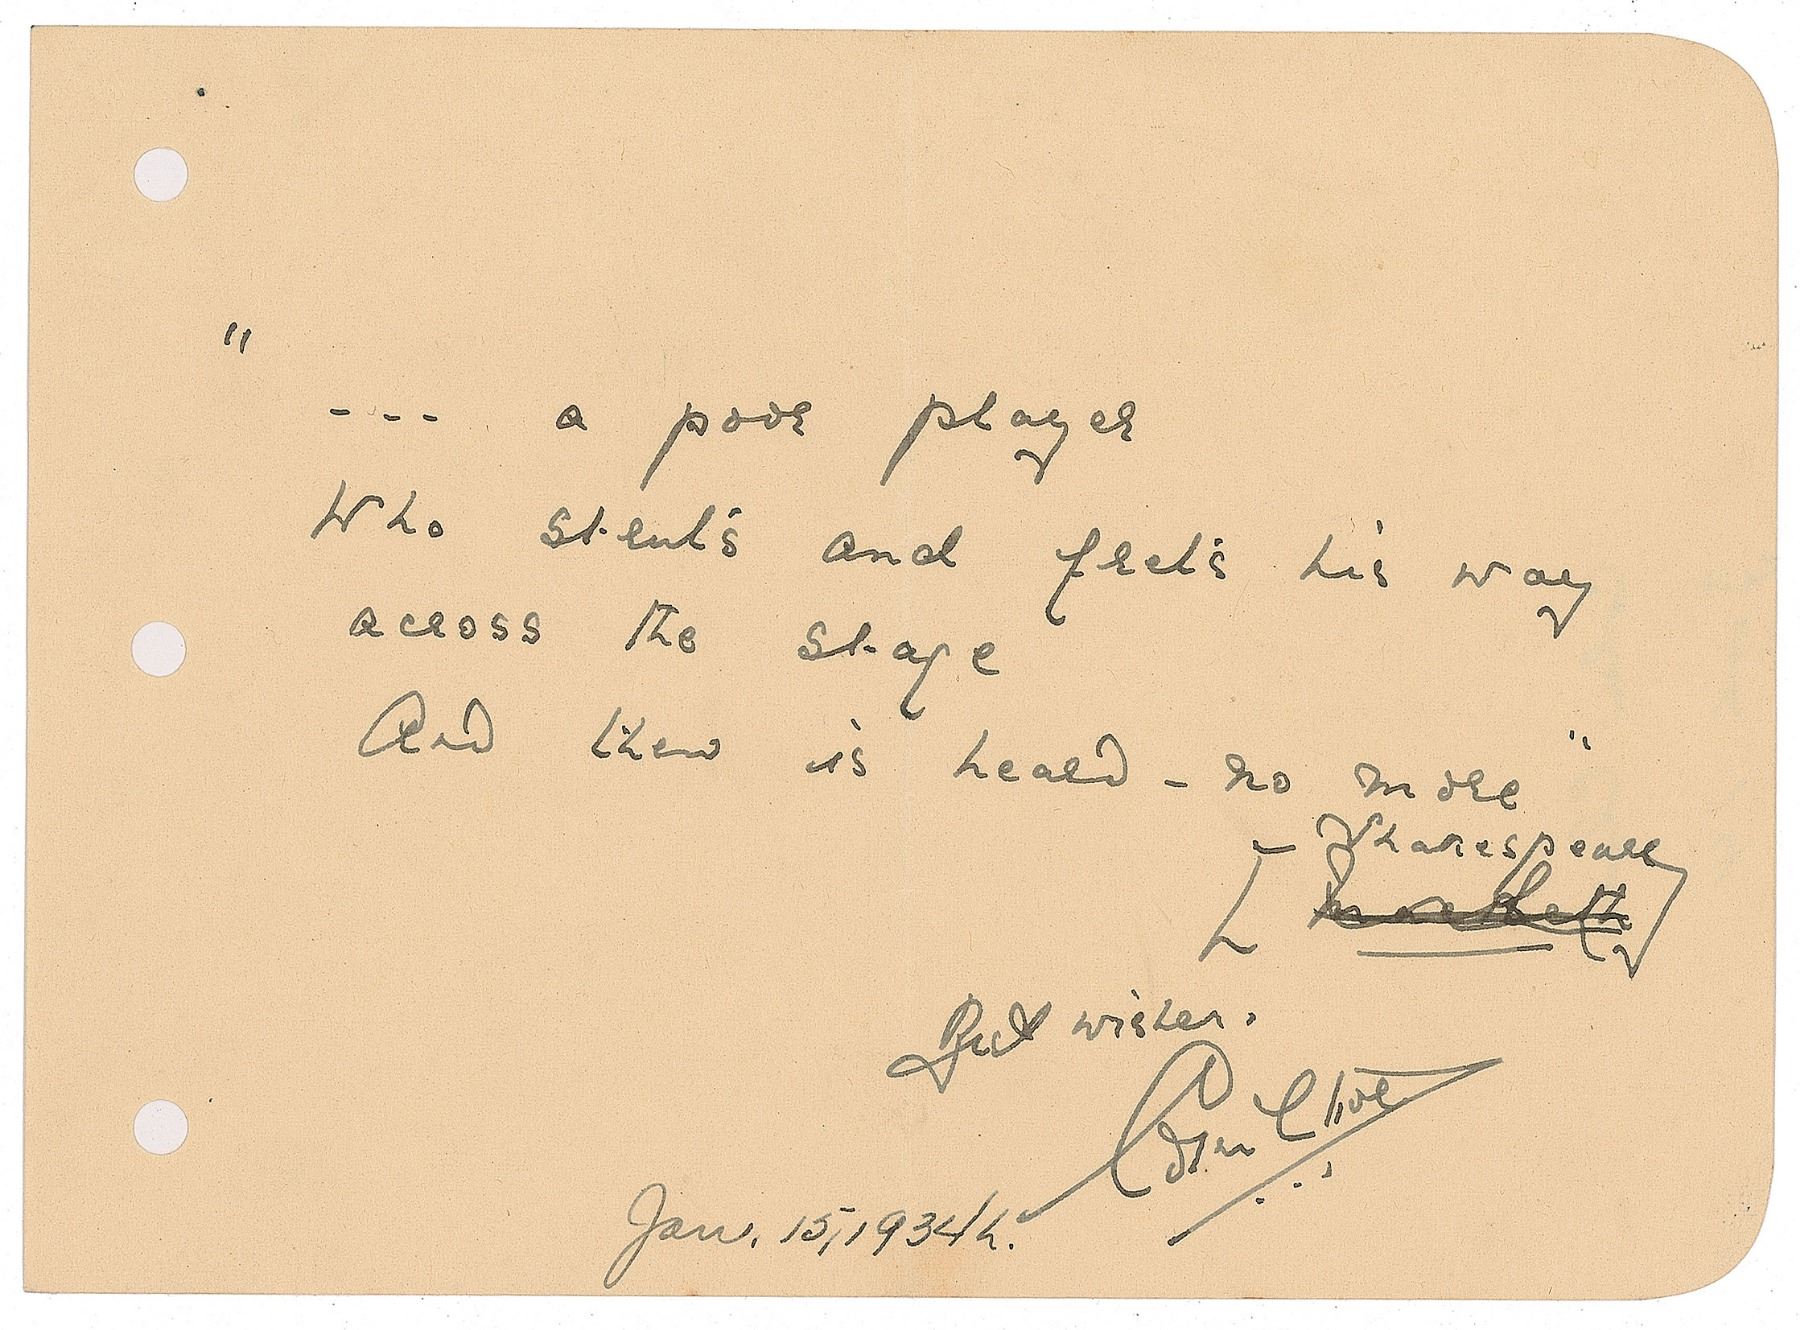 "
--- a poor player
Who struts and frets his way
across the stage
And then is heard - no more"
- Shakespeare
Macbeth
Best wishes.
Colin Clive
Jan. 15, 1934